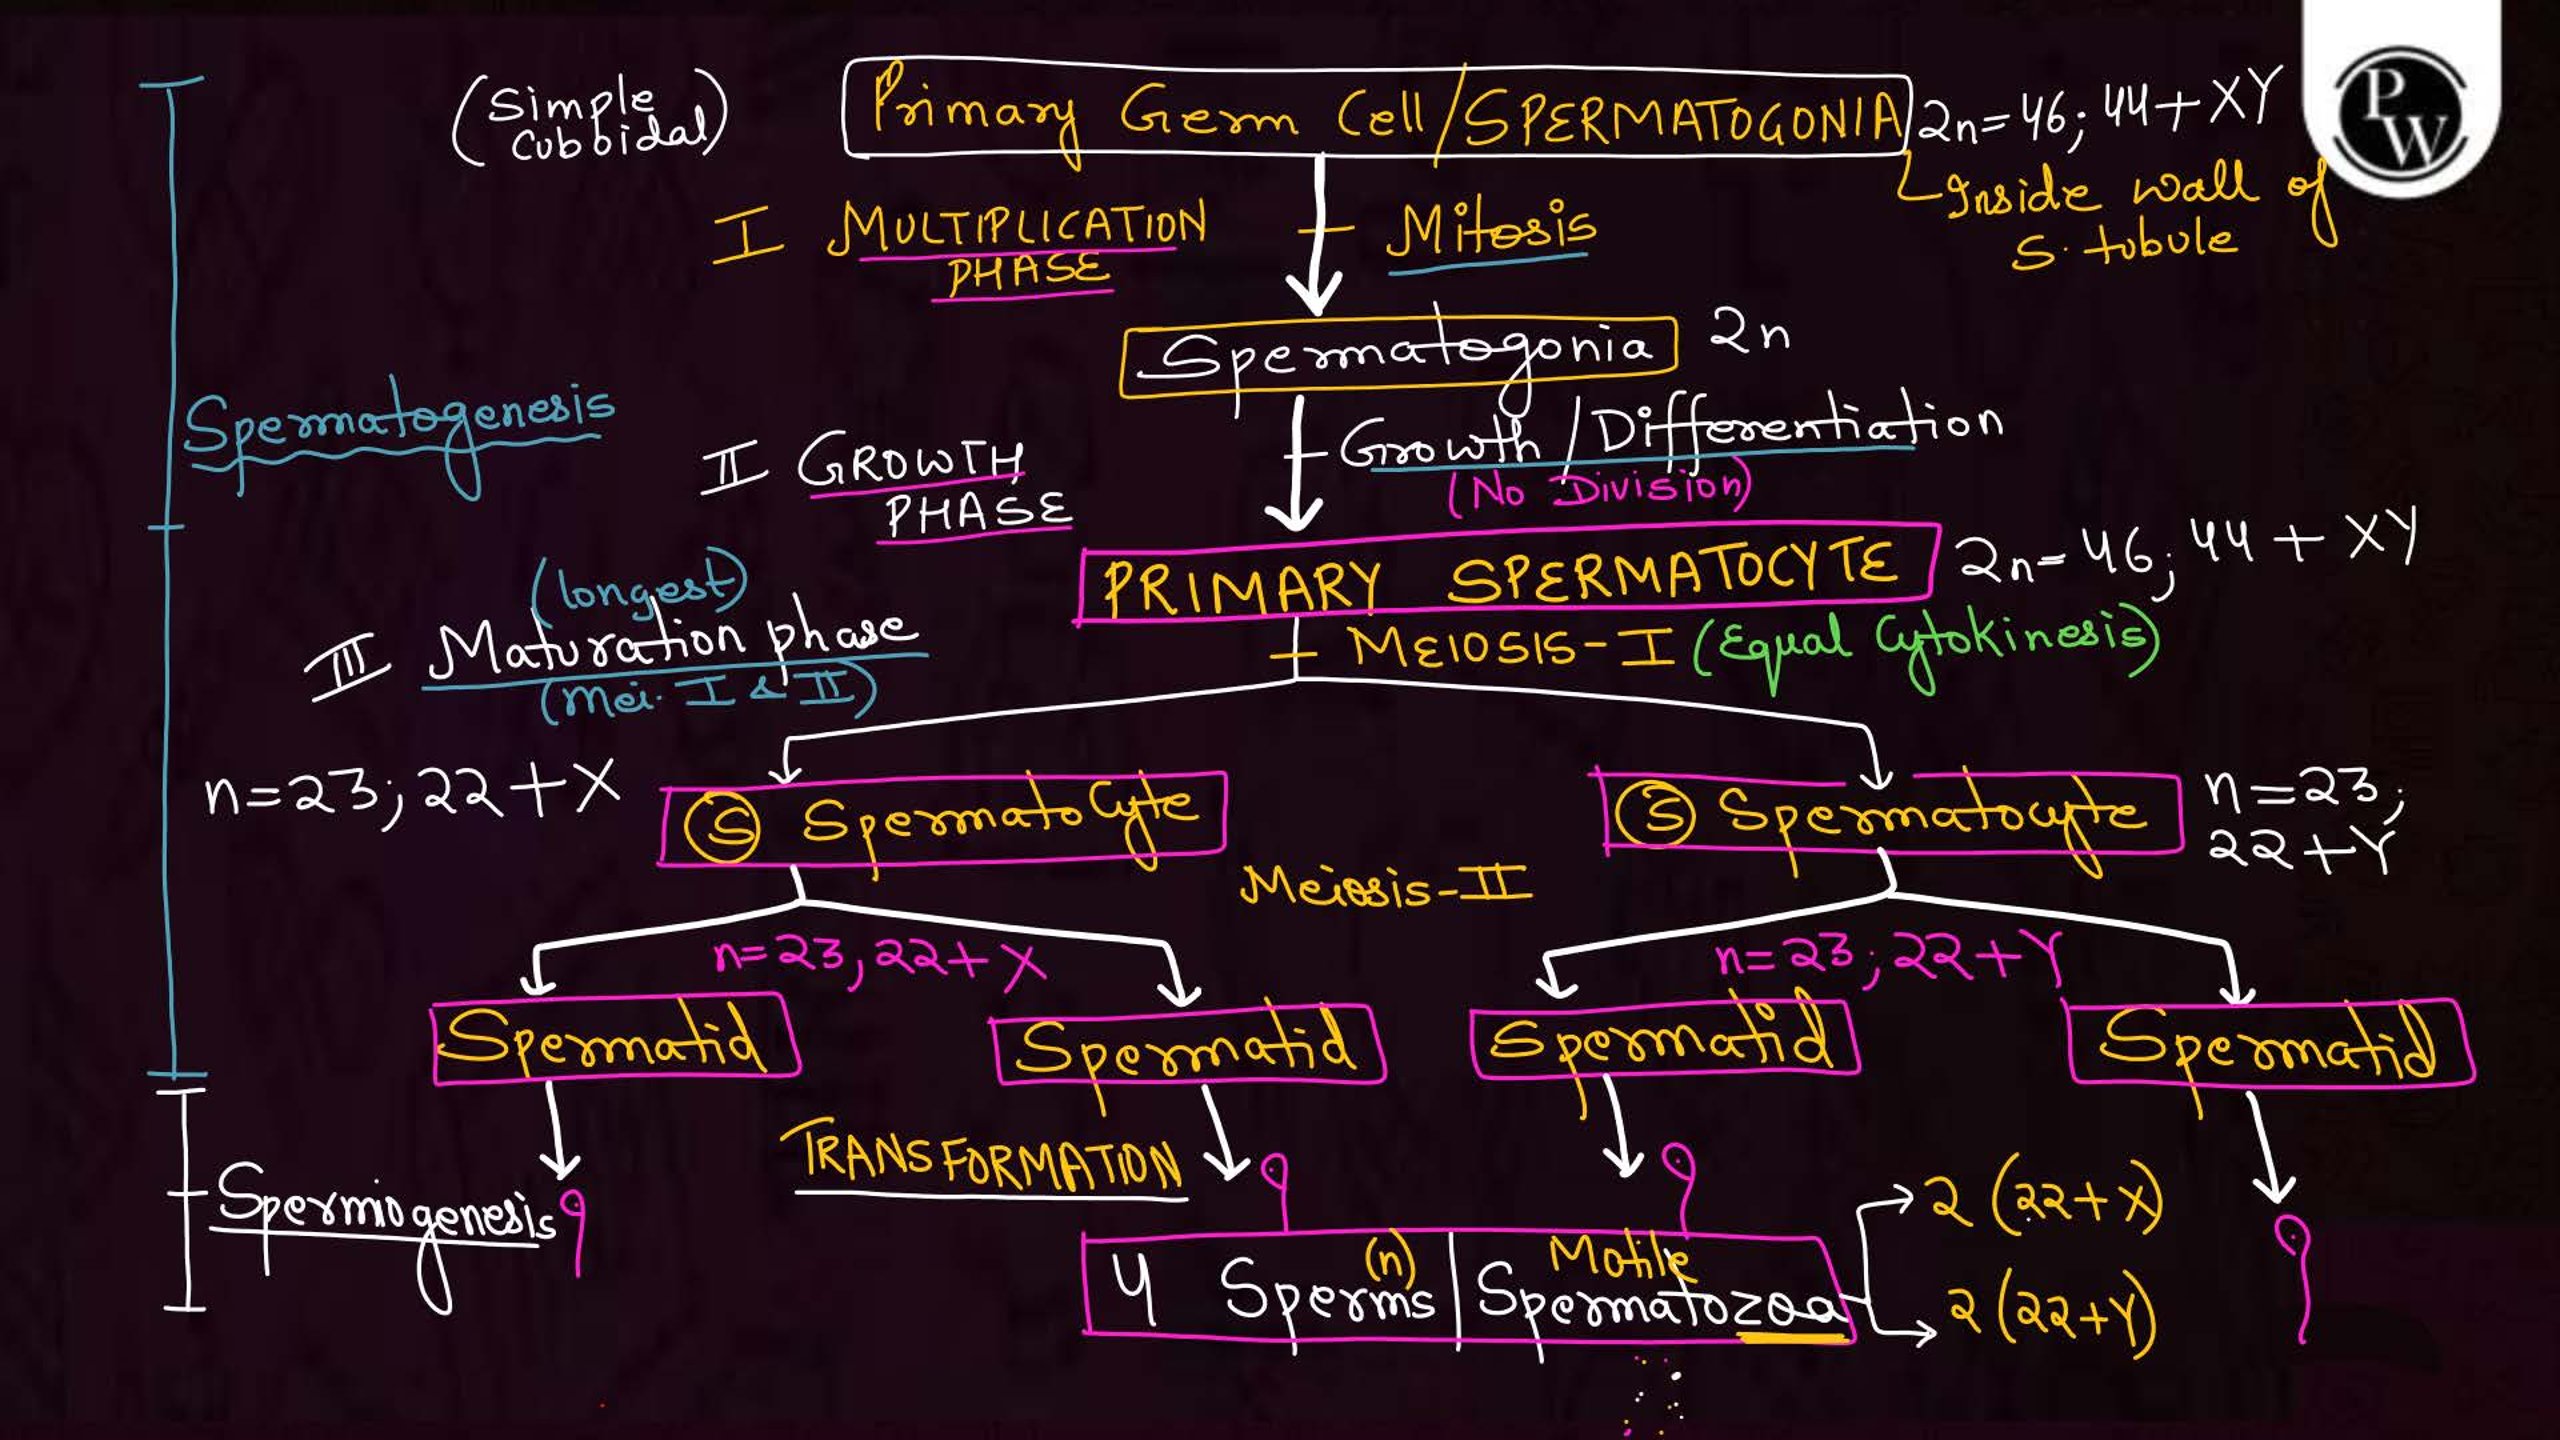 (Simple
Cubboidal)
Primary Germ Cell/SPERMATOGONIA
2n=46; 44+XY
PW
Inside wall of
S. tubule
I MULTIPLICATION
PHASE
Mitosis
Spermatogonia 2n
Spermatogenesis
II GROWTH
PHASE
Growth/Differentiation
(No Division)
PRIMARY SPERMATOCYTE 2n=46; 44+XY
(longest)
III Maturation phase
(Mei. I & II)
MEIOSIS-I (Equal Cytokinesis)
n=23; 22+X
S Spermatocyte
S Spermatocyte
n=23;
22+Y
Meiosis-II
n=23, 22+X
n=23; 22+Y
Spermatid
Spermatid
Spermatid
Spermatid
TRANSFORMATION
Spermiogenesis
4 Sperms (n) | Motile Spermatozoa
2 (22+X)
2 (22+Y)